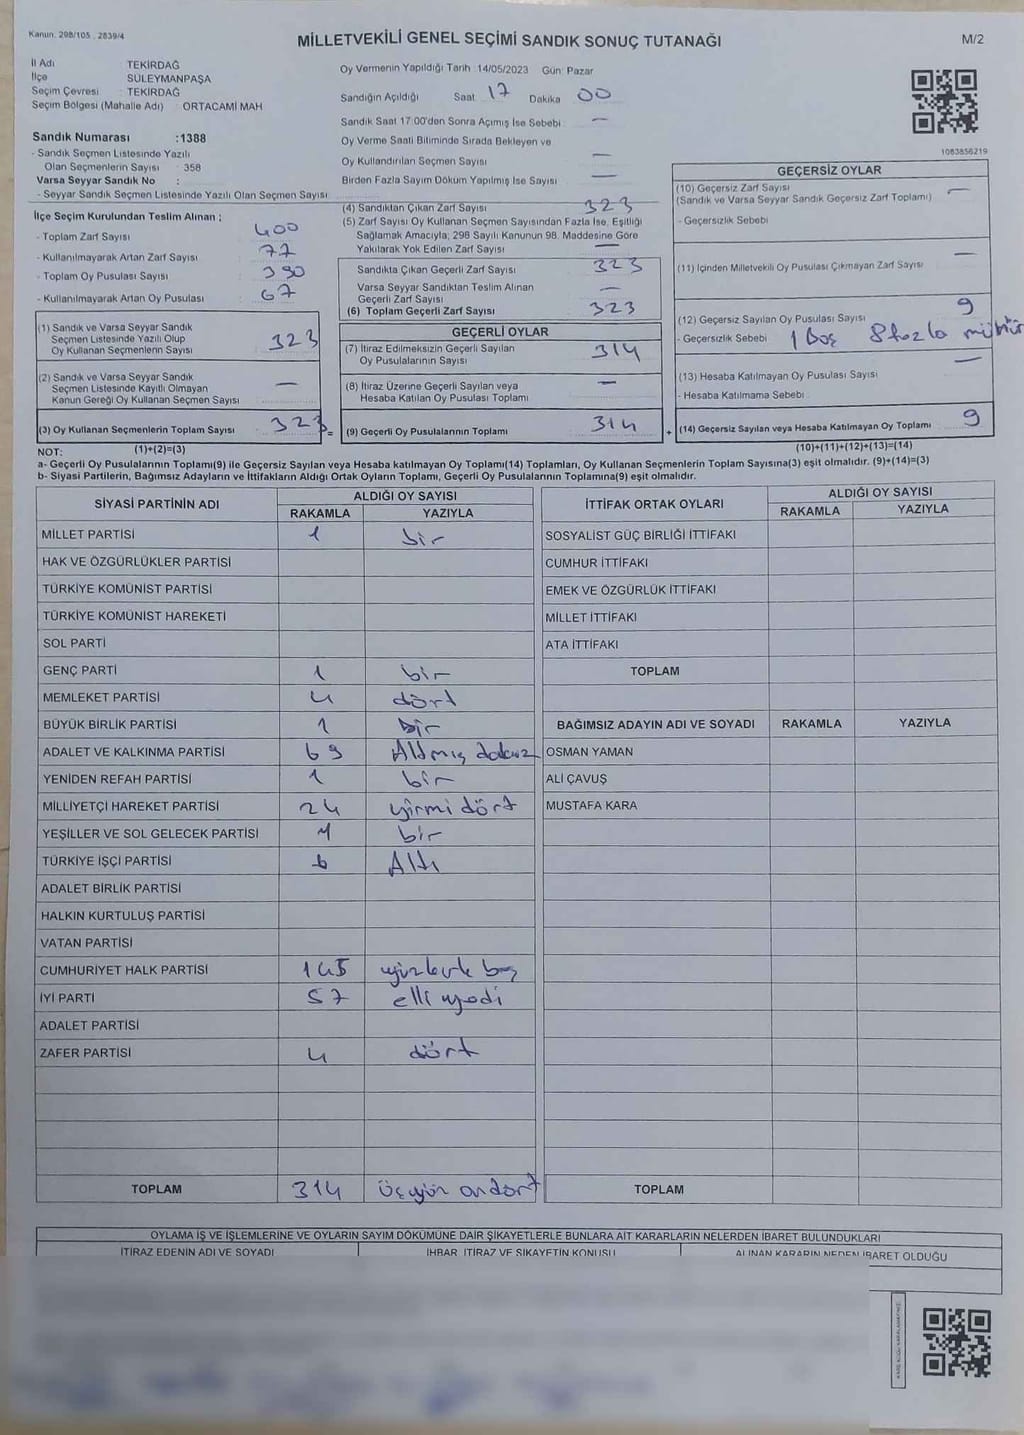 Kanun. 298/105 . 2839/4
MİLLETVEKİLİ GENEL SEÇİMİ SANDIK SONUÇ TUTANAĞI
M/2
İl Adı TEKİRDAĞ
İlçe SÜLEYMANPAŞA
Seçim Çevresi : TEKİRDAĞ
Seçim Bölgesi (Mahalle Adı) : ORTACAMİ MAH
Oy Vermenin Yapıldığı Tarih :14/05/2023 Gün: Pazar
Sandığın Açıldığı Saat 17 Dakika 00
Sandık Saat 17:00'den Sonra Açımış İse Sebebi —
Oy Verme Saati Bitiminde Sırada Bekleyen ve
Oy Kullandırılan Seçmen Sayısı —
Birden Fazla Sayım Döküm Yapılmış İse Sayısı —
1083856219
Sandık Numarası :1388
- Sandık Seçmen Listesinde Yazılı
Olan Seçmenlerin Sayısı : 358
Varsa Seyyar Sandık No :
- Seyyar Sandık Seçmen Listesinde Yazılı Olan Seçmen Sayısı
İlçe Seçim Kurulundan Teslim Alınan ;
- Toplam Zarf Sayısı : 400
- Kullanılmayarak Artan Zarf Sayısı : 77
- Toplam Oy Pusulası Sayısı : 390
- Kullanılmayarak Artan Oy Pusulası : 67
(1) Sandık ve Varsa Seyyar Sandık
Seçmen Listesinde Yazılı Olup
Oy Kullanan Seçmenlerin Sayısı 323
(2) Sandık ve Varsa Seyyar Sandık
Seçmen Listesinde Kayıtlı Olmayan
Kanun Gereği Oy Kullanan Seçmen Sayısı —
(3) Oy Kullanan Seçmenlerin Toplam Sayısı 323
(4) Sandıktan Çıkan Zarf Sayısı 323
(5) Zarf Sayısı Oy Kullanan Seçmen Sayısından Fazla İse, Eşitliği
Sağlamak Amacıyla; 298 Sayılı Kanunun 98. Maddesine Göre
Yakılarak Yok Edilen Zarf Sayısı —
Sandıkta Çıkan Geçerli Zarf Sayısı 323
Varsa Seyyar Sandıktan Teslim Alınan
Geçerli Zarf Sayısı —
(6) Toplam Geçerli Zarf Sayısı 323
GEÇERLİ OYLAR
(7) İtiraz Edilmeksizin Geçerli Sayılan
Oy Pusulalarının Sayısı 314
(8) İtiraz Üzerine Geçerli Sayılan veya
Hesaba Katılan Oy Pusulası Toplamı —
= (9) Geçerli Oy Pusulalarının Toplamı 314
GEÇERSİZ OYLAR
(10) Geçersiz Zarf Sayısı —
(Sandık ve Varsa Seyyar Sandık Geçersiz Zarf Toplamı)
- Geçersizlik Sebebi
(11) İçinden Milletvekili Oy Pusulası Çıkmayan Zarf Sayısı —
(12) Geçersiz Sayılan Oy Pusulası Sayısı 9
- Geçersizlik Sebebi 1 Boş 8 fazla mühür
(13) Hesaba Katılmayan Oy Pusulası Sayısı —
- Hesaba Katılmama Sebebi
+ (14) Geçersiz Sayılan veya Hesaba Katılmayan Oy Toplamı 9
NOT: (1)+(2)=(3)
(10)+(11)+(12)+(13)=(14)
a- Geçerli Oy Pusulalarının Toplamı(9) ile Geçersiz Sayılan veya Hesaba katılmayan Oy Toplamı(14) Toplamları, Oy Kullanan Seçmenlerin Toplam Sayısına(3) eşit olmalıdır. (9)+(14)=(3)
b- Siyasi Partilerin, Bağımsız Adayların ve İttifakların Aldığı Ortak Oyların Toplamı, Geçerli Oy Pusulalarının Toplamına(9) eşit olmalıdır.
SİYASİ PARTİNİN ADI
ALDIĞI OY SAYISI
RAKAMLA YAZIYLA
MİLLET PARTİSİ 1 bir
HAK VE ÖZGÜRLÜKLER PARTİSİ
TÜRKİYE KOMÜNİST PARTİSİ
TÜRKİYE KOMÜNİST HAREKETİ
SOL PARTİ
GENÇ PARTİ 1 bir
MEMLEKET PARTİSİ 4 dört
BÜYÜK BİRLİK PARTİSİ 1 bir
ADALET VE KALKINMA PARTİSİ 69 Altmış dokuz
YENİDEN REFAH PARTİSİ 1 bir
MİLLİYETÇİ HAREKET PARTİSİ 24 yirmi dört
YEŞİLLER VE SOL GELECEK PARTİSİ 1 bir
TÜRKİYE İŞÇİ PARTİSİ 6 Altı
ADALET BİRLİK PARTİSİ
HALKIN KURTULUŞ PARTİSİ
VATAN PARTİSİ
CUMHURİYET HALK PARTİSİ 145 yüzkırk beş
İYİ PARTİ 57 elli yedi
ADALET PARTİSİ
ZAFER PARTİSİ 4 dört
TOPLAM 314 üçyüz ondört
İTTİFAK ORTAK OYLARI
ALDIĞI OY SAYISI
RAKAMLA YAZIYLA
SOSYALİST GÜÇ BİRLİĞİ İTTİFAKI
CUMHUR İTTİFAKI
EMEK VE ÖZGÜRLÜK İTTİFAKI
MİLLET İTTİFAKI
ATA İTTİFAKI
TOPLAM
BAĞIMSIZ ADAYIN ADI VE SOYADI RAKAMLA YAZIYLA
OSMAN YAMAN
ALİ ÇAVUŞ
MUSTAFA KARA
TOPLAM
OYLAMA İŞ VE İŞLEMLERİNE VE OYLARIN SAYIM DÖKÜMÜNE DAİR ŞİKAYETLERLE BUNLARA AİT KARARLARIN NELERDEN İBARET BULUNDUKLARI
İTİRAZ EDENİN ADI VE SOYADI
İHBAR, İTİRAZ VE ŞİKAYETİN KONUSU
ALINAN KARARIN NEDEN İBARET OLDUĞU